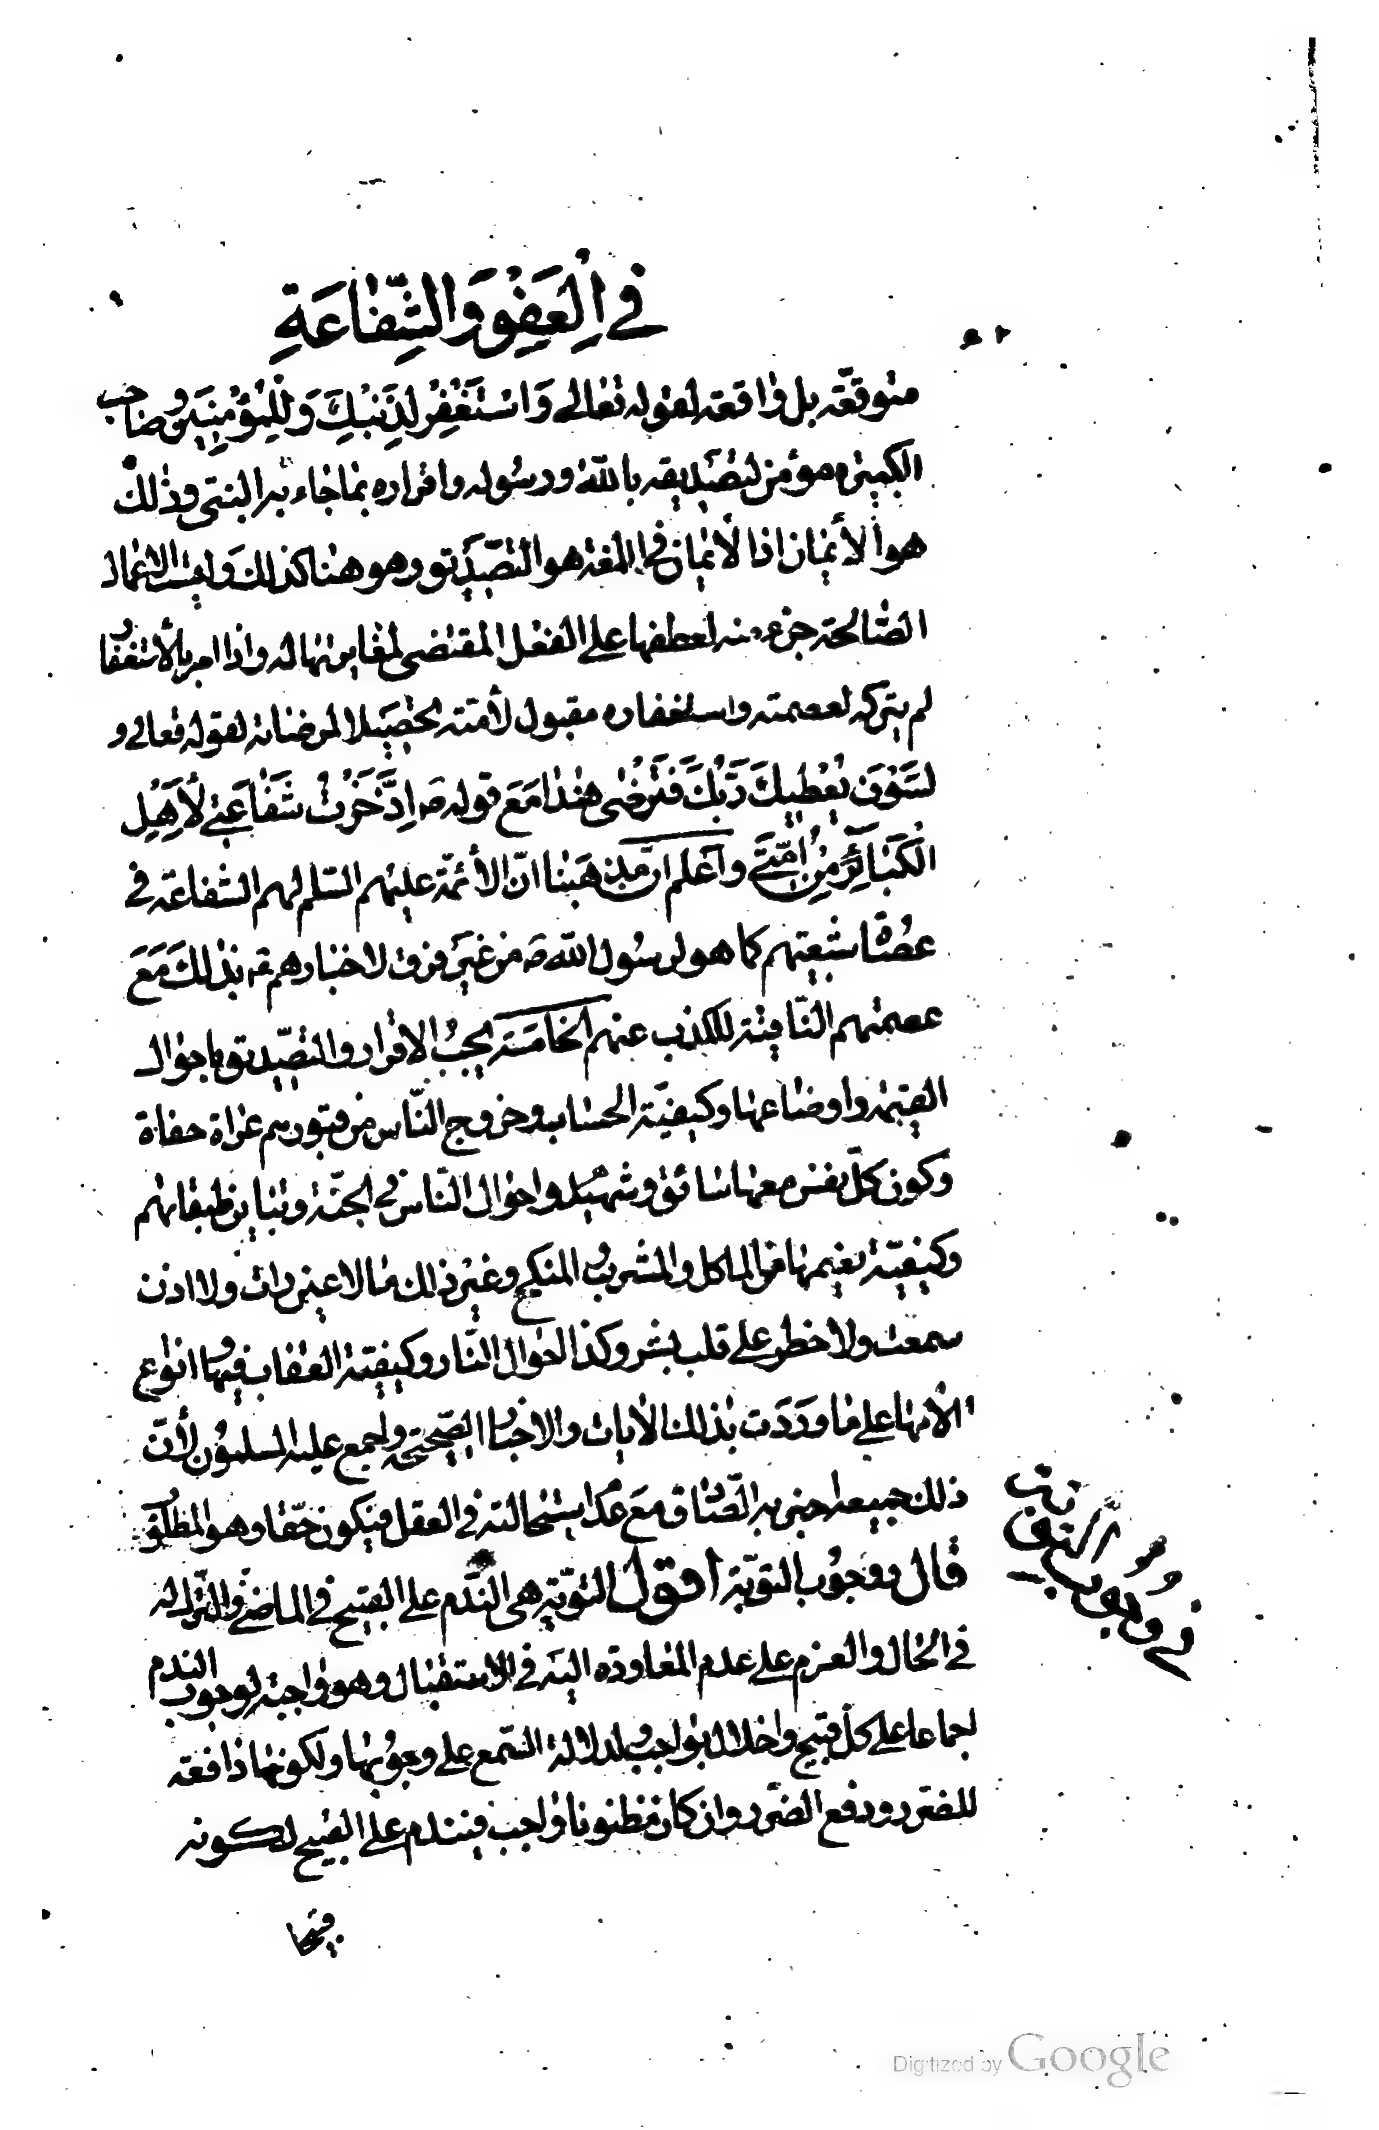 في العفو والشفاعة
متوقعة بل واقعة لقوله تعالى وَاسْتَغْفِرْ لِذَنْبِكَ وَلِلْمُؤْمِنِينَ وصاحب
الكبيرة مؤمن لتصديقه بالله ورسوله واقراره بما جاء به النبى وذلك
هو الأيمان اذ الأيمان في اللغة هو التصديق وهو هنا كذلك وليست الاعمال
الصالحة جزء منه لعطفها على الفعل المقتضى لمغايرتها له واذا امر بالأستغفار
لم يتركه لعصمته واستغفاره مقبول لأمته تحصيلا لمرضاته لقوله تعالى و
لَسَوْفَ يُعْطِيكَ رَبُّكَ فَتَرْضَى هذا مَعَ قوله ص اِدَّخَرْتُ شَفَاعَتِي لِأَهْلِ
الْكَبَائِرِ مِنْ اُمَّتِي واعلم انّ مذهبنا انّ الأئمّة عليهم السّلم لهم الشفاعة في
عصاة شيعتهم كما هو لرسول الله ص من غير فرق لاخبارهم ع بذلك مَعَ
عصمتهم النّافية للكذب عنهم الخامسة يجب الاقرار والتصديق باحوال
القيمة واوضاعها وكيفيّة الحساب وخروج النّاس من قبورهم عراة حفاة
وكون كلّ نفس معها سائق وشهيد واحوال النّاس في الجنّة وتباين طبقاتهم
وكيفيّة نعيمها من الماكل والمشرب والمنكح وغير ذلك مما لا عين رات ولا اذن
سمعت ولا خطر على قلب بشر وكذا احوال النّار وكيفيّة العقاب فيها وانواع
الامها على ما وردت بذلك الأيات والاخبار الصّحيحة واجمع عليه المسلمون لأنّ
ذلك جميعه اخبر به الصّادق مَعَ عدم استحالته في العقل فيكون حقّا وهو المطلوب
قال ووجوب التوبة اقول التوبة هي النّدم على القبيح في الماضى والترك له
في الحال والعزم على عدم المعاودة اليه في الاستقبال وهو واجبة لوجوب الندم
اجماعا على كلّ قبيح واخلال بواجب ولدلالة السّمع على وجوبها ولكونها دافعة
للضرر ودفع الضّرر وان كان مظنونا واجب فيندم على القبيح لكونه
قبيحا
في وجوب التوبة